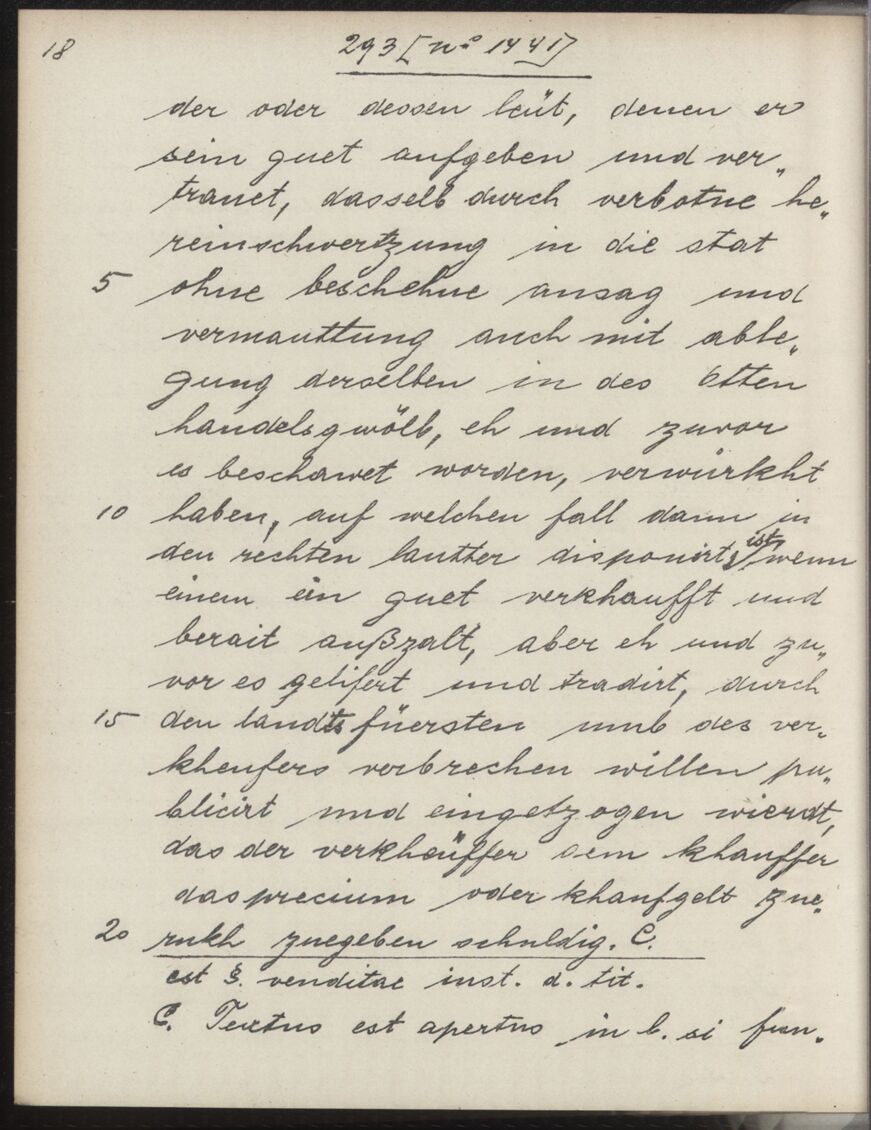 18
293 [nº 1441]
der oder dessen leüt, denen er
sein guet aufgeben und ver„
trauet, dasselb durch verbotne he„
reinschwertzung in die stat
5 ohne beschehne ansag und
vermauttung auch mit able„
gung derselben in des Otten
handelsgwölb, eh und zuvor
es beschawet worden, verwürkht
10 haben, auf welchen fall dann in
den rechten lautter disponirt, ist wenn
einem ein guet verkhaufft und
berait außzalt, aber eh und zu„
vor es gelifert und tradirt, durch
15 den landtsfüersten umb des ver„
kheufers verbrechen willen pu„
blicirt und eingetzogen wierdt,
das der verkheüffer dem khauffer
das precium oder khaufgelt zue„
20 rukh zuegeben schuldig. C.
est §. venditae inst. d. tit.
C. Textus est apertus in l. si fun„